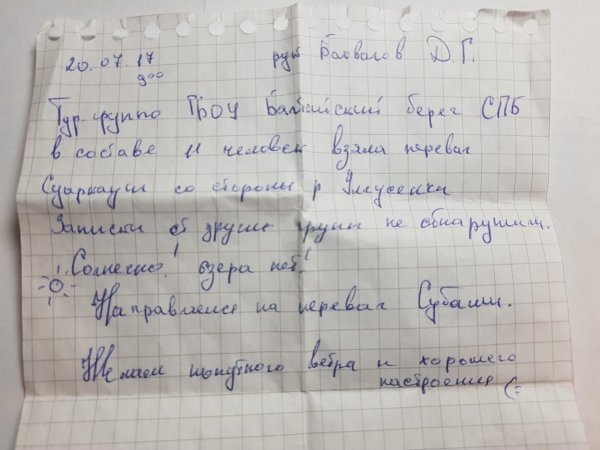 20.07.17 рук Бахвалов Д.Г.
9:00
Тургруппа ГБОУ Балтийский берег СПБ
в составе 11 человек взяла перевал
со стороны р
Записки от других групп не обнаружили.
Солнечно! озера нет!
Направляемся на перевал Субаши.
Желаем попутного ветра и хорошего
настроения (=